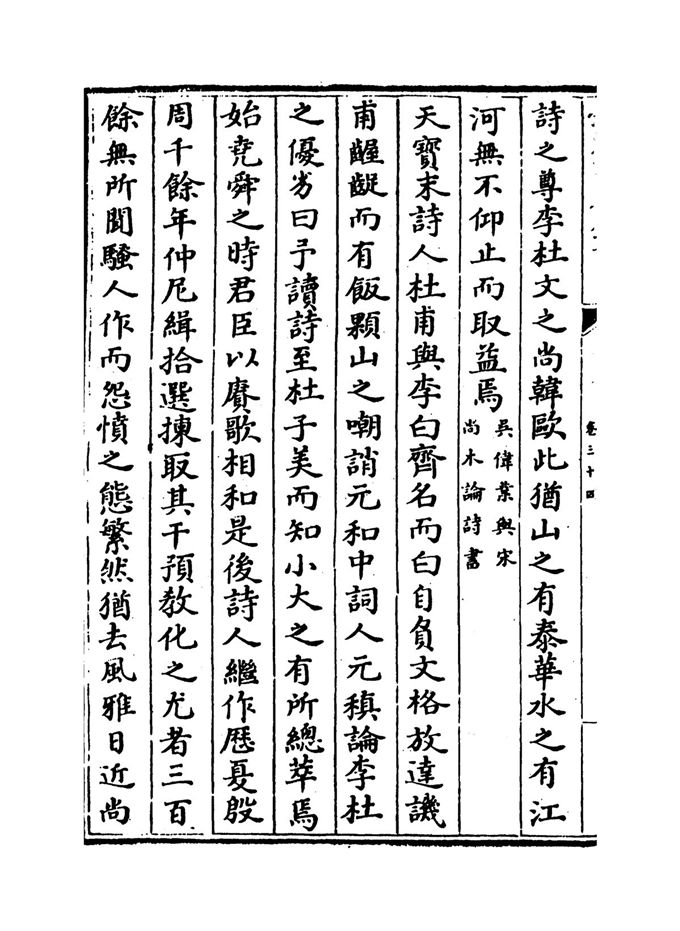 卷三十四
詩之尊李杜文之尚韓歐此猶山之有泰華水之有江
河無不仰止而取益焉吳偉業與宋
尚木論詩書
天寶末詩人杜甫與李白齊名而白自負文格放達譏
甫齷齪而有飯顆山之嘲誚元和中詞人元稹論李杜
之優劣曰予讀詩至杜子美而知小大之有所總萃焉
始堯舜之時君臣以賡歌相和是後詩人繼作歴夏殷
周千餘年仲尼緝拾選揀取其干預教化之尤者三百
餘無所聞騷人作而怨憤之態繁然猶去風雅日近尚